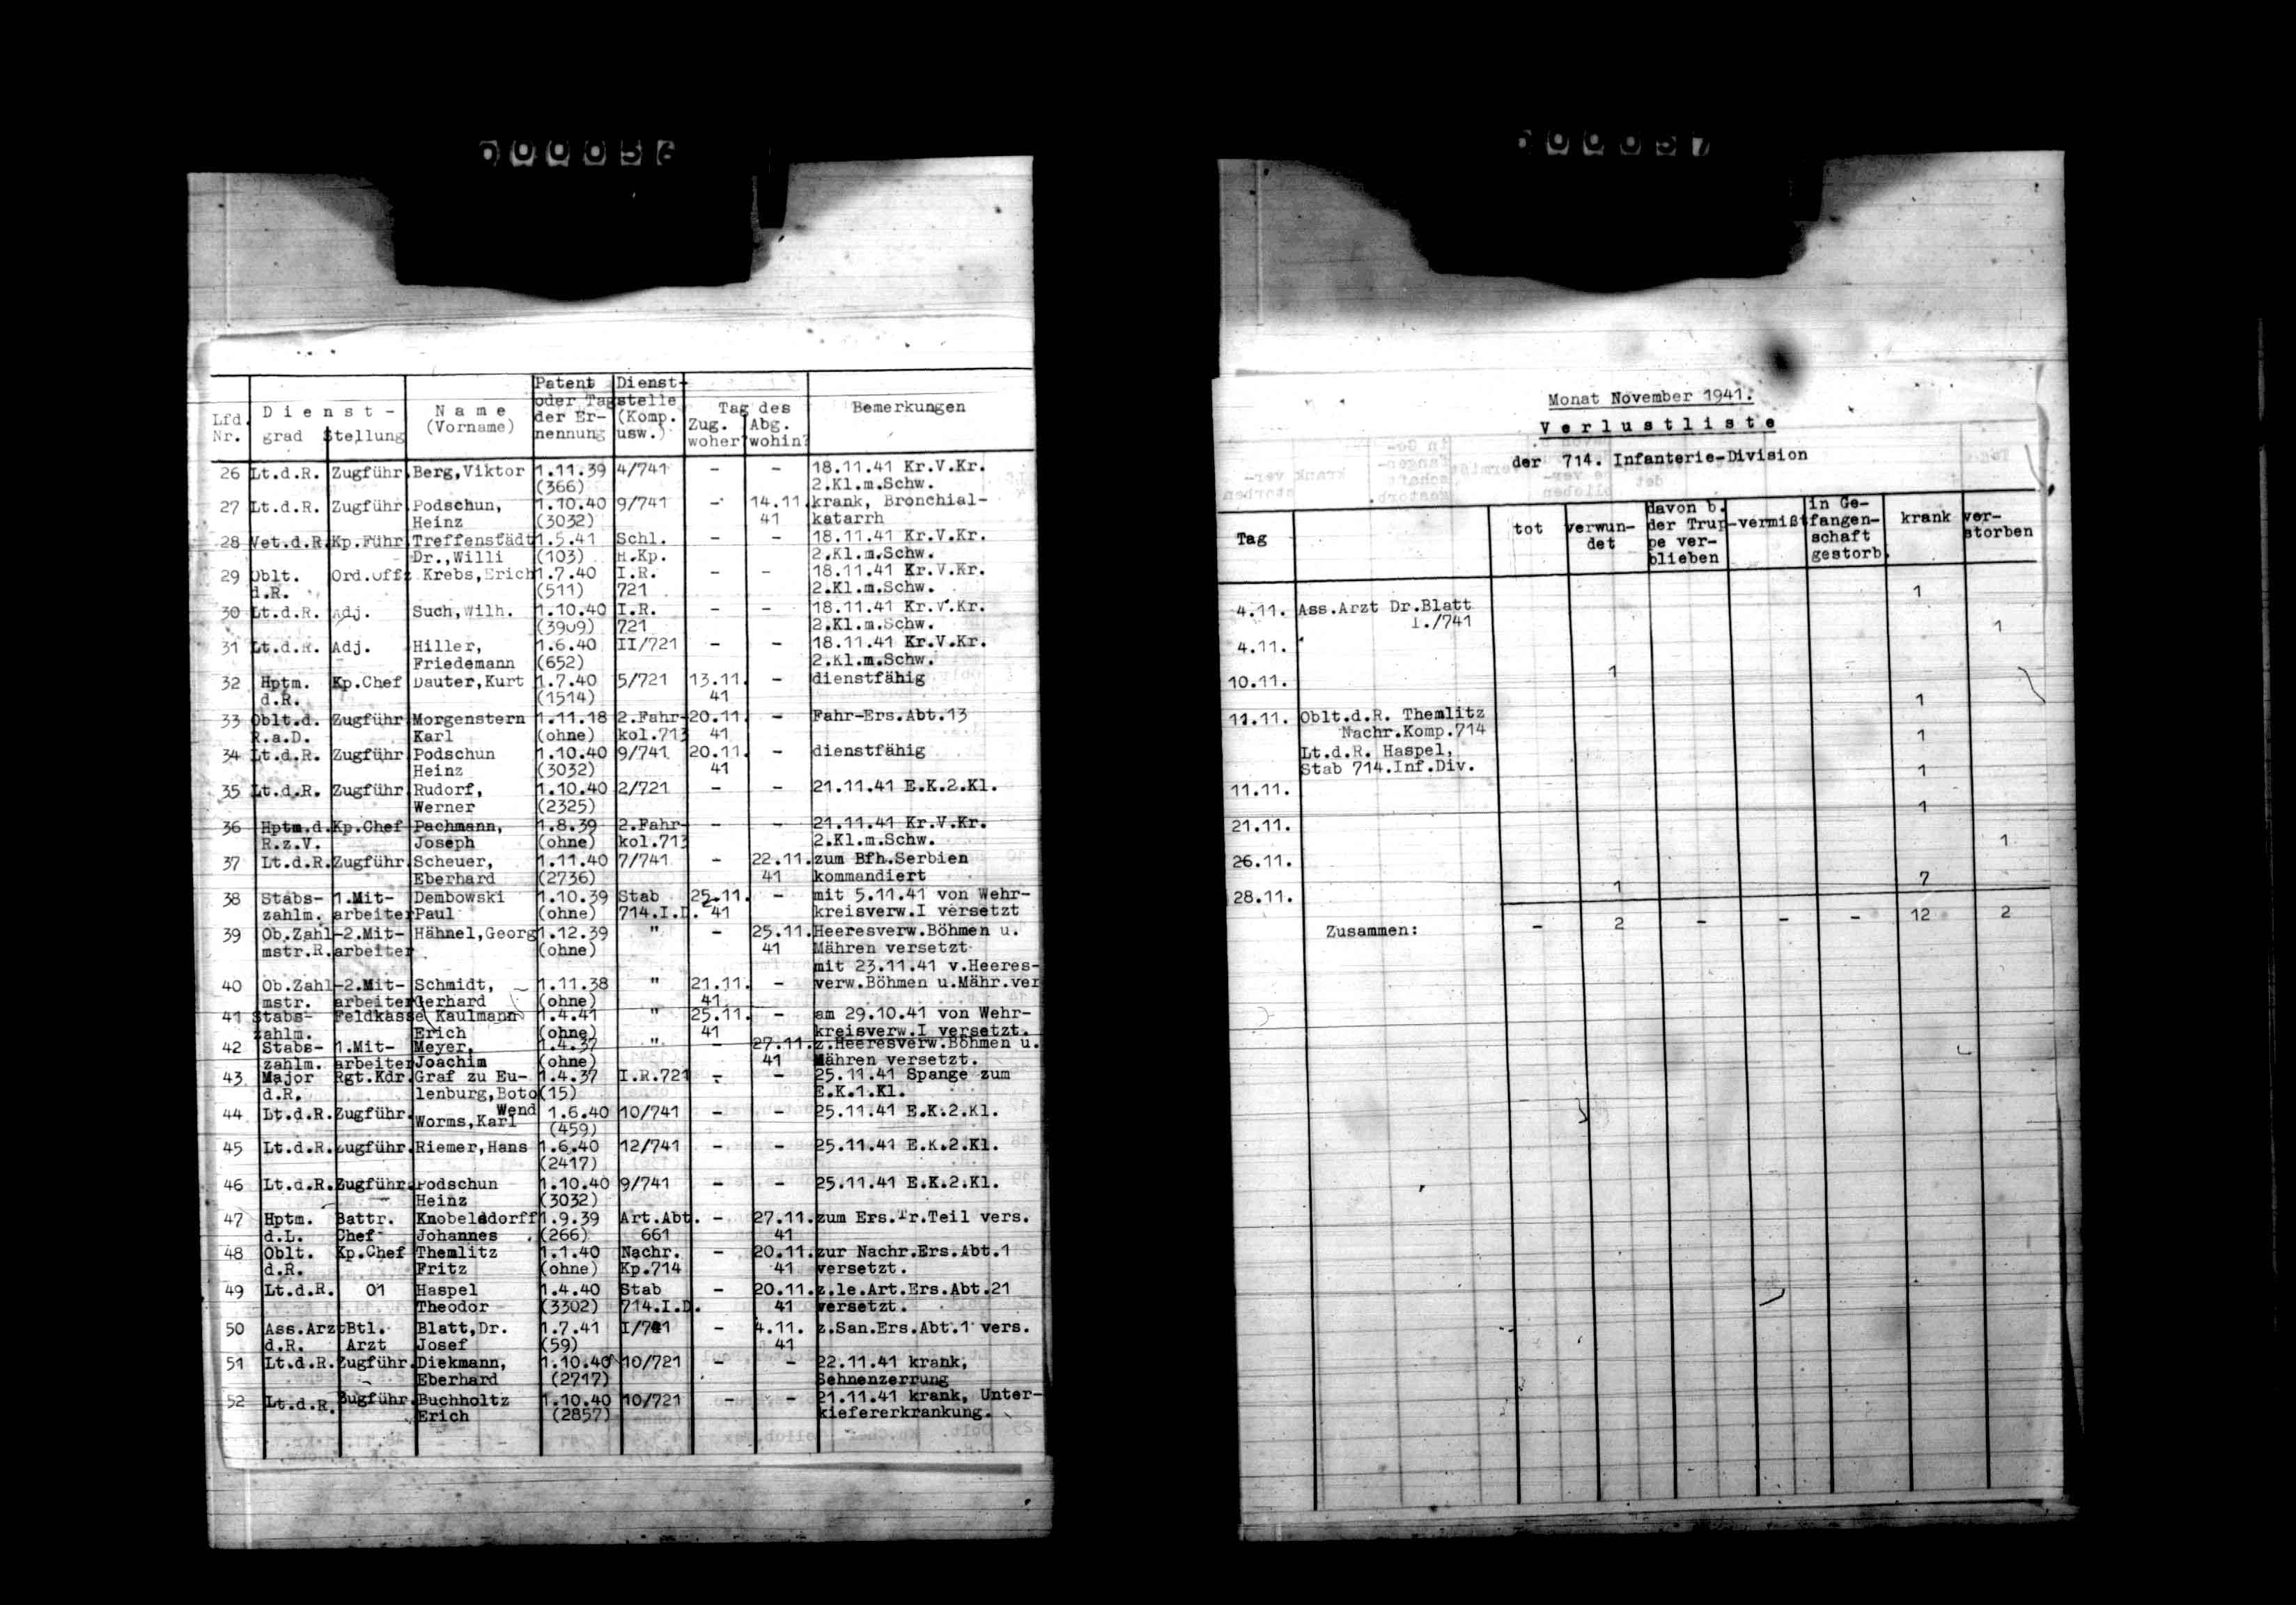 000056
Lfd. Nr. | Dienst-grad | Stellung | Name (Vorname) | Patent oder Tag der Er-nennung | Dienst-stelle (Komp. usw.) | Tag des Zug. woher? | Abg. wohin? | Bemerkungen
26 Lt.d.R. Zugführ. Berg,Viktor 1.11.39 4/741 - - 18.11.41 Kr.V.Kr.
(366) 2.Kl.m.Schw.
27 Lt.d.R. Zugführ. Podschun, 1.10.40 9/741 - 14.11. krank, Bronchial-
Heinz (3032) 41 katarrh
28 Vet.d.R. Kp.Führ. Treffenstädt 1.5.41 Schl. - - 18.11.41 Kr.V.Kr.
Dr.,Willi (103) H.Kp. 2.Kl.m.Schw.
29 Oblt. Ord.Offz. Krebs,Erich 1.7.40 I.R. - - 18.11.41 Kr.V.Kr.
d.R. (511) 721 2.Kl.m.Schw.
30 Lt.d.R. Adj. Such,Wilh. 1.10.40 I.R. - - 18.11.41 Kr.V.Kr.
(3909) 721 2.Kl.m.Schw.
31 Lt.d.R. Adj. Hiller, 1.6.40 II/721 - - 18.11.41 Kr.V.Kr.
Friedemann (652) 2.Kl.m.Schw.
32 Hptm. Kp.Chef Dauter,Kurt 1.7.40 5/721 13.11. - dienstfähig
d.R. (1514) 41
33 Oblt.d. Zugführ. Morgenstern 1.11.18 2.Fahr- 20.11. - Fahr-Ers.Abt.13
R.a.D. Karl (ohne) kol.713 41
34 Lt.d.R. Zugführ. Podschun 1.10.40 9/741 20.11. - dienstfähig
Heinz (3032) 41
35 Lt.d.R. Zugführ. Rudorf, 1.10.40 2/721 - - 21.11.41 E.K.2.Kl.
Werner (2325)
36 Hptm.d. Kp.Chef Pachmann, 1.8.39 2.Fahr- - - 21.11.41 Kr.V.Kr.
R.z.V. Joseph (ohne) kol.713 2.Kl.m.Schw.
37 Lt.d.R. Zugführ. Scheuer, 1.11.40 7/741 - 22.11. zum Bfh.Serbien
Eberhard (2736) 41 kommandiert
38 Stabs- 1.Mit- Dembowski 1.10.39 Stab 25.11. - mit 5.11.41 von Wehr-
zahlm. arbeiter Paul (ohne) 714.I.D. 41 kreisverw.I versetzt
39 Ob.Zahl- 2.Mit- Hähnel,Georg 1.12.39 " - 25.11. Heeresverw.Böhmen u.
mstr.R. arbeiter (ohne) 41 Mähren versetzt
mit 23.11.41 v.Heeres-
40 Ob.Zahl- 2.Mit- Schmidt, 1.11.38 " 21.11. - verw.Böhmen u.Mähr.ver
mstr. arbeiter Gerhard (ohne) 41
41 Stabs- Feldkasse Kaulmann 1.4.41 " 25.11. - am 29.10.41 von Wehr-
zahlm. Erich (ohne) 41 kreisverw.I versetzt.
42 Stabs- 1.Mit- Meyer, 1.4.37 " - 27.11. z.Heeresverw.Böhmen u.
zahlm. arbeiter Joachim (ohne) 41 Mähren versetzt.
43 Major Rgt.Kdr. Graf zu Eu- 1.4.37 I.R.721 - - 25.11.41 Spange zum
d.R. lenburg,Boto (15) E.K.1.Kl.
Wend
44 Lt.d.R. Zugführ. Worms,Karl 1.6.40 10/741 - - 25.11.41 E.K.2.Kl.
(459)
45 Lt.d.R. Zugführ. Riemer,Hans 1.6.40 12/741 - - 25.11.41 E.K.2.Kl.
(2417)
46 Lt.d.R. Zugführ. Podschun 1.10.40 9/741 - - 25.11.41 E.K.2.Kl.
Heinz (3032)
47 Hptm. Battr. Knobelsdorff 1.9.39 Art.Abt. - 27.11. zum Ers.Tr.Teil vers.
d.L. Chef Johannes (266) 661 41
48 Oblt. Kp.Chef Themlitz 1.1.40 Nachr. - 20.11. zur Nachr.Ers.Abt.1
d.R. Fritz (ohne) Kp.714 41 versetzt.
49 Lt.d.R. 01 Haspel 1.4.40 Stab - 20.11. z.le.Art.Ers.Abt.21
Theodor (3302) 714.I.D. 41 versetzt.
50 Ass.Arzt Btl. Blatt,Dr. 1.7.41 I/741 - 4.11. z.San.Ers.Abt.1 vers.
d.R. Arzt Josef (59) 41
51 Lt.d.R. Zugführ. Diekmann, 1.10.40 10/721 - - 22.11.41 krank,
Eberhard (2717) Sehnenzerrung
52 Lt.d.R. Zugführ. Buchholtz 1.10.40 10/721 - - 21.11.41 krank, Unter-
Erich (2857) kiefererkrankung.
000057
Monat November 1941.
Verlustliste
der 714. Infanterie-Division
Tag | tot | verwun-det | davon b. der Trup-pe ver-blieben | vermißt | in Ge-fangen-schaft gestorb. | krank | ver-storben
4.11. Ass.Arzt Dr.Blatt 1
I./741
4.11. 1
10.11. 1
11.11. Oblt.d.R. Themlitz 1
Nachr.Komp.714
Lt.d.R. Haspel, 1
Stab 714.Inf.Div.
11.11. 1
21.11. 1
26.11. 1
28.11. 1 7
Zusammen: - 2 - - - 12 2